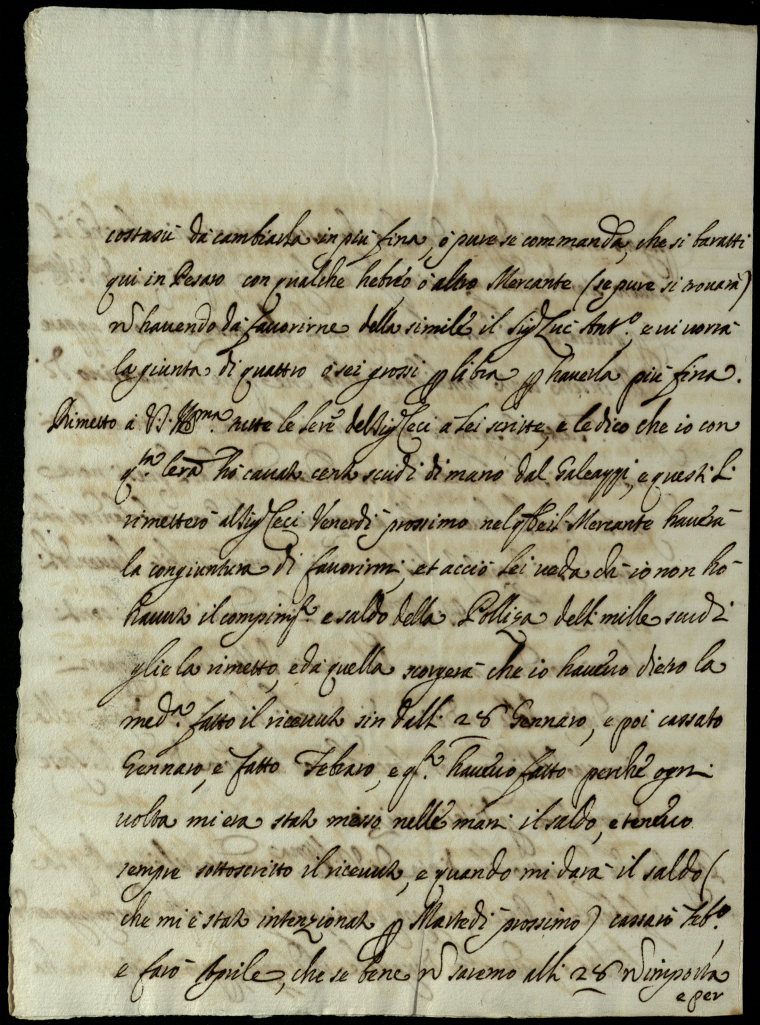 costasù da cambiarla in più fina, ò pure se commanda, che si baratti
qui in Pesaro con qualche hebreo ò altro Mercante (se pure si trouarà)
nõ hauendo da fauorirne della simile il Sig.r Luc' Ant.o, e ui uorrà
la giunta di quattro ò sei grossi p libra p hauerla più fina.
Rimetto à V.S. Ill.ma tutte le lere del Sig.r Ceci à Lei scritte, e le dico che io con
q.ta lera hò cauati cento scudi di mano dal Galeazzi, e questi li
rimetterò al Sig.r Ceci Venerdì prossimo nel q.le il Mercante hauerà
la congiuntura di fauorirmi, et acciò Lei ueda che io non hò
hauuto il compim.to e saldo della Polliza delli mille scudi
glie la rimetto, e da quella scorgerà che io haueuo dietro la
med.a fatto il riceuuto sin dalli 28 Gennaro, e poi cassato
Gennaro, e fatto Febraro, e q.to haueuo fatto perche ogni
uolta mi era stato messo nelle mani il saldo, e teneuo
sempre sottoscritto il riceuuto, e quando mi darà il saldo (
che mi è stato intenzionato p Martedì prossimo) cassarò Feb.o,
e farò Aprile, che se bene nõ saremo alli 28 nõ importa
e per